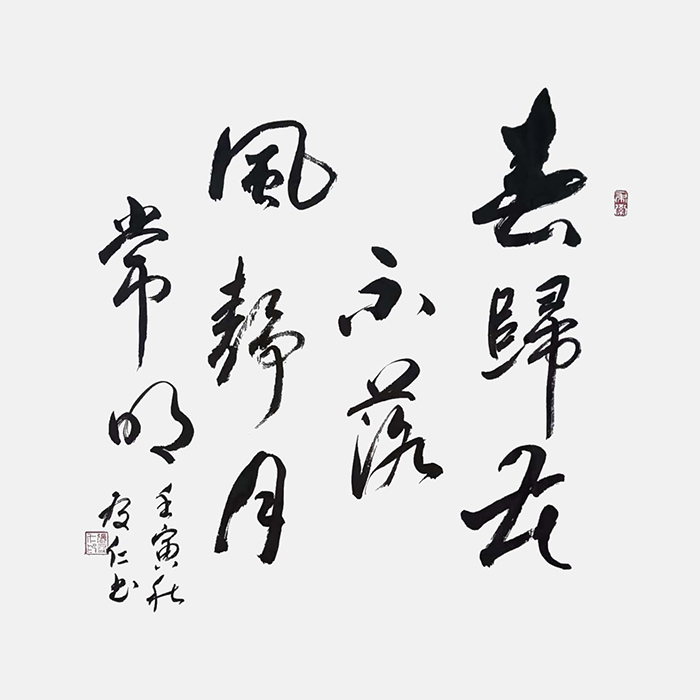 春歸花
不落
風靜月
常明
壬寅秋
友仁书